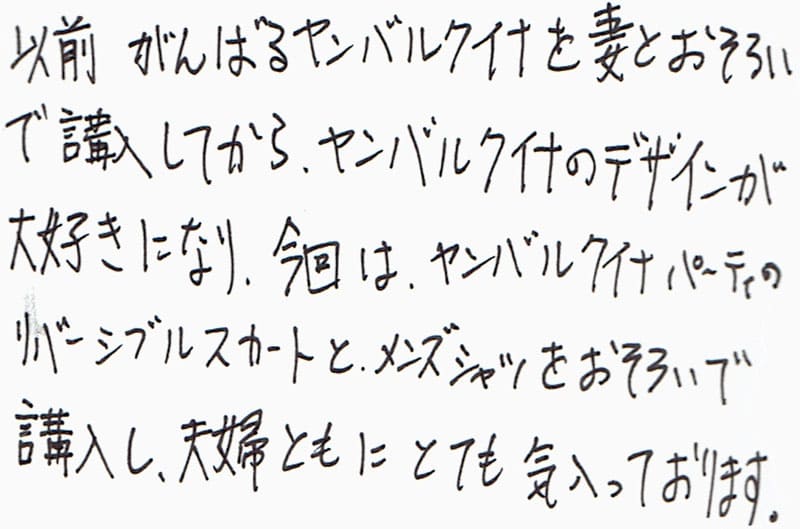 以前 がんばるヤンバルクイナを妻とおそろい
で講入してから、ヤンバルクイナのデザインが
大好きになり、今回は、ヤンバルクイナパーティの
リバーシブルスカートと、メンズシャツをおそろいで
講入し、夫婦ともにとても気入っております。